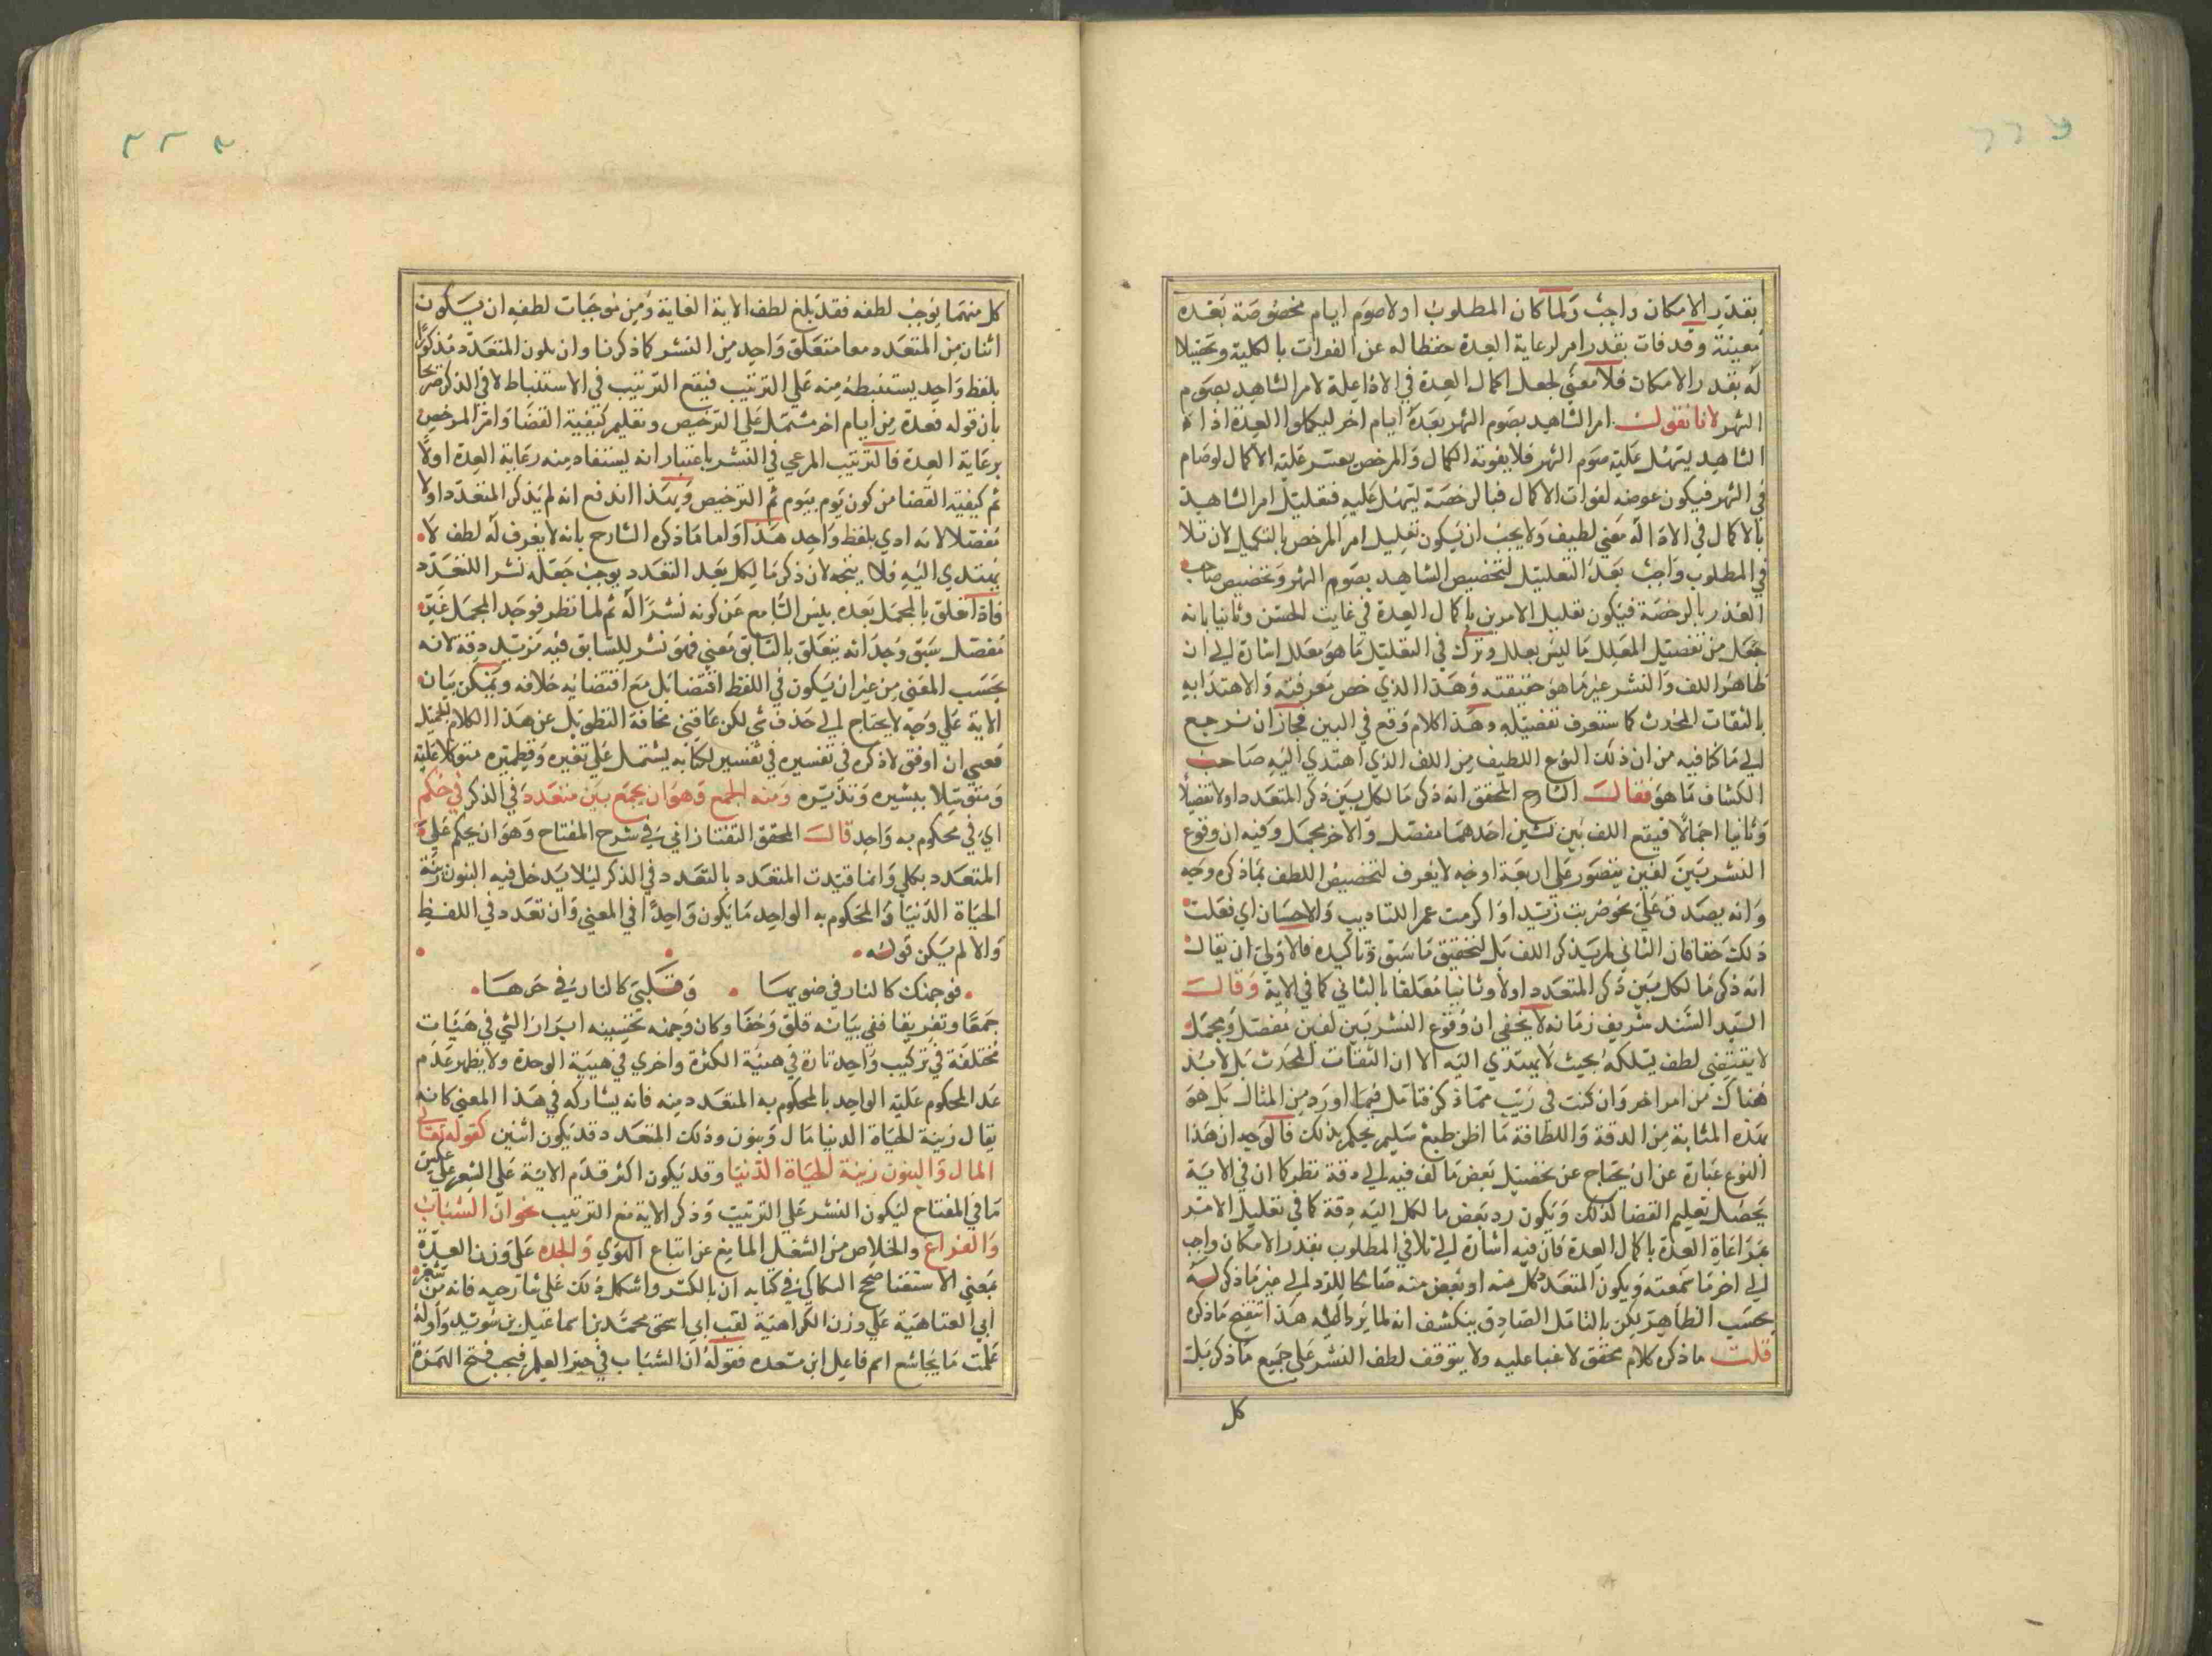 بقدر الامكان واجب ولما كان المطلوب اولا صوم ايام مخصوصة بعده
معينة وقد فات بقدر امر لرعاية العدة حفظا له عن الفوات بالكلية وتحصيلا
له بقدر الامكان فلا معنى لجعل اكمال العدة في الاداء علة لامر الشاهد بصوم
الشهر لانا نقول امر الشاهد بصوم الشهر بعدة ايام اخر ليكملوا العدة اذ
الشاهد يتهل عليه صوم الشهر فلا يفوته الكمال والمرخص يعسر عليه الاكمال لو صام
في الشهر فيكون عوضه لفوات الاكمال فبالرخصة ليتهل عليه فتعليل امر الشاهد
بالاكمال في الاداء له معنى لطيف ولا يجب ان يكون تعليل امر المرخص بالتكميل لان تلا
في المطلوب واجب بعد التعليل لتخصيص الشاهد بصوم الشهر وتخصيص صاحب
العذر بالرخصة فيكون تعليل الامرين باكمال العدة في غايت الحسن وثانيا بانه
جعل من تفصيل المعلل ما ليس بعلل وترك في التعليل ما هو معلل اشارة الى ان
ظاهر اللف والنشر غير ما هو حقيقته وهذا الذي خص معرفته والاهتدا به
بالثقات المحدث كما ستعرف تفصيله وهذا كلام وقع في البين فجاز ان نرجع
الى ما كنا فيه من ان ذلك النوع اللطيف من اللف الذي اهتدي اليه صاحب
الكشاف ما هو فقال الشارح المحقق انه ذكر ما لكل بين ذكر المتعدد اولا تفصيلا
وثانيا اجمالا فيقع اللف بين نشرين احدهما مفصل والاخر مجمل وفيه ان وقوع
النشر بين لفين يتصور على اربعة اوجه لا يعرف لتخصيص اللطف بما ذكره وجه
وانه يصدق على نحو ضربت زيدا واكرمت عمرا للتاديب والاحسان اي فعلت
ذلك حقا فان الثاني لم يذكر اللف بل لتحقيق ما سبق وتاكيده فالاولى ان يقال
انه ذكر ما لكل بين ذكر المتعدد اولا وثانيا معلقا بالثاني كما في الاية وقال
السيد السند شريف زمانه لا يخفى ان وقوع النشر بين لفين مفصل ومجمل
لا يقتضي لطف يسلكه بحيث لا يهتدي اليه الا ان الثقات المحدث بل لا بد
هناك من امر اخر وان كنت في ريب مما ذكر فتامل فيما اورد من المثال بل هو
بهذه المثابة من الدقة واللطافة ما اظن طبع سليم يحكم بذلك فالوجه ان هذا
النوع عبارة عن ان يحتاج عن تحصيل بعض ما لف فيه الى دقة نظر كما ان في الاية
يحصل تعليم القضا لذلك ويكون رد بعض ما لكل اليه دقة كما في تعليل الامر
بمراعاة العدة باكمال العدة فان فيه اشارة الى تلافي المطلوب بقدر الامكان واجب
الى اخر ما سمعته ويكون المتعدد كل منه او بعض منه صالحا للرد الى غير ما ذكر له
بحسب الظاهر لكن بالتامل الصادق ينكشف انه لما يرد اليه هذا تنقيح ما ذكره
قلت ما ذكره كلام محقق لا غبا عليه ولا يتوقف لطف النشر على جميع ما ذكر بل
كل
كل منهما يوجب لطفه فقد بلغ لطف الاية الغاية ومن موجبات لطفه ان يكون
اثنان من المتعدد معا متعلق واحد من النشر كما ذكرنا وان يكون المتعدد مذكورا
بلفظ واحد يستنبط منه على الترتيب فيقع الترتيب في الاستنباط لا في الذكر صريحا
بان قوله فعدة من ايام اخر مشتمل على الترخيص وتعليم كيفية القضا وامر المرخص
برعاية العدة فالترتيب المرعي في النشر باعتبار انه يستفاد منه رعاية العدة اولا
ثم كيفية القضا من كون يوم بيوم ثم الترخيص وبهذا اندفع انه لم يذكر المتعدد اولا
مفصلا لانه ادي بلفظ واحد هذا واما ما ذكره الشارح بانه لا يعرف له لطف لا
يهتدي اليه فلا يتجه لان ذكر ما لكل بعد التعدد يوجب جعله نشرا للتعدد
فاذا علق بالمجمل بعده يئس السامع عن كونه نشرا له ثم لما نظر فوجد المجمل غير
مفصل سبق وجد انه يتعلق بالسابق معنى فهو نشر للسابق فيه مزيد دقة لانه
بحسب المعنى من غير ان يكون في اللفظ اقتضا بل مع اقتضائه خلافه ويمكن بيان
الاية على وجه لا يحتاج الى حذف شي لكن عاقني مخافة التطويل عن هذا الكلام بتحميل
فعسى ان اوفق لاذكره في تفسيره في تفسير لكتابه يشتمل على نقيره وقطميره متوكلا عليه
ومتوسلا ببشيره ونذيره ومنه الجمع وهو ان يجمع بين متعدد في الذكر في حكم
اي في محكوم به واحد قال المحقق التفتازاني في شرح المفتاح وهو ان يحكم على
المتعدد بكلي وانما قيدت المتعدد بالتعدد في الذكر ليلا يدخل فيه البنون زينة
الحياة الدنيا والمحكوم به الواحد ما يكون واحدا في المعنى وان تعدد في اللفظ
والا لم يكن قوله
فوجهك كالنار في ضويها وقلبي كالنار في حرها
جمعا وتفريقا ففي بيانه قلق وخفا وكان وجهه تحسينه ابراز الشي في هيات
مختلفة في تركيب واحد تارة في هيئة الكثرة واخرى في هيية الوحدة ولا يظهر عدم
عد المحكوم عليه الواحد بالمحكوم به المتعدد منه فانه يشاركه في هذا المعنى كانه
يقال زينة الحياة الدنيا مال وبنون وذلك المتعدد قد يكون اثنين كقوله تعالى
المال والبنون زينة الحياة الدنيا وقد يكون اكثر قدم الاية على الشعر على عكس
ما في المفتاح ليكون النشر على الترتيب وذكر الاية مع الترتيب نحو ان الشباب
والفراغ والخلاص من الشغل المانع عن اتباع الهوي والجده على وزن العدة
بمعنى الاستغنا صحح السكاكي في كتابه ان بالكسر واشكل ذلك على شارحيه فانه من شعر
ابي العتاهية على وزن الكراهية لقب ابي اسحق محمد بن اسماعيل بن سويد واوله
علمت ما يجاشع اسم فاعل ابن مسعده فقوله ان الشباب في حيز العلم فيجب فتح الهمزة